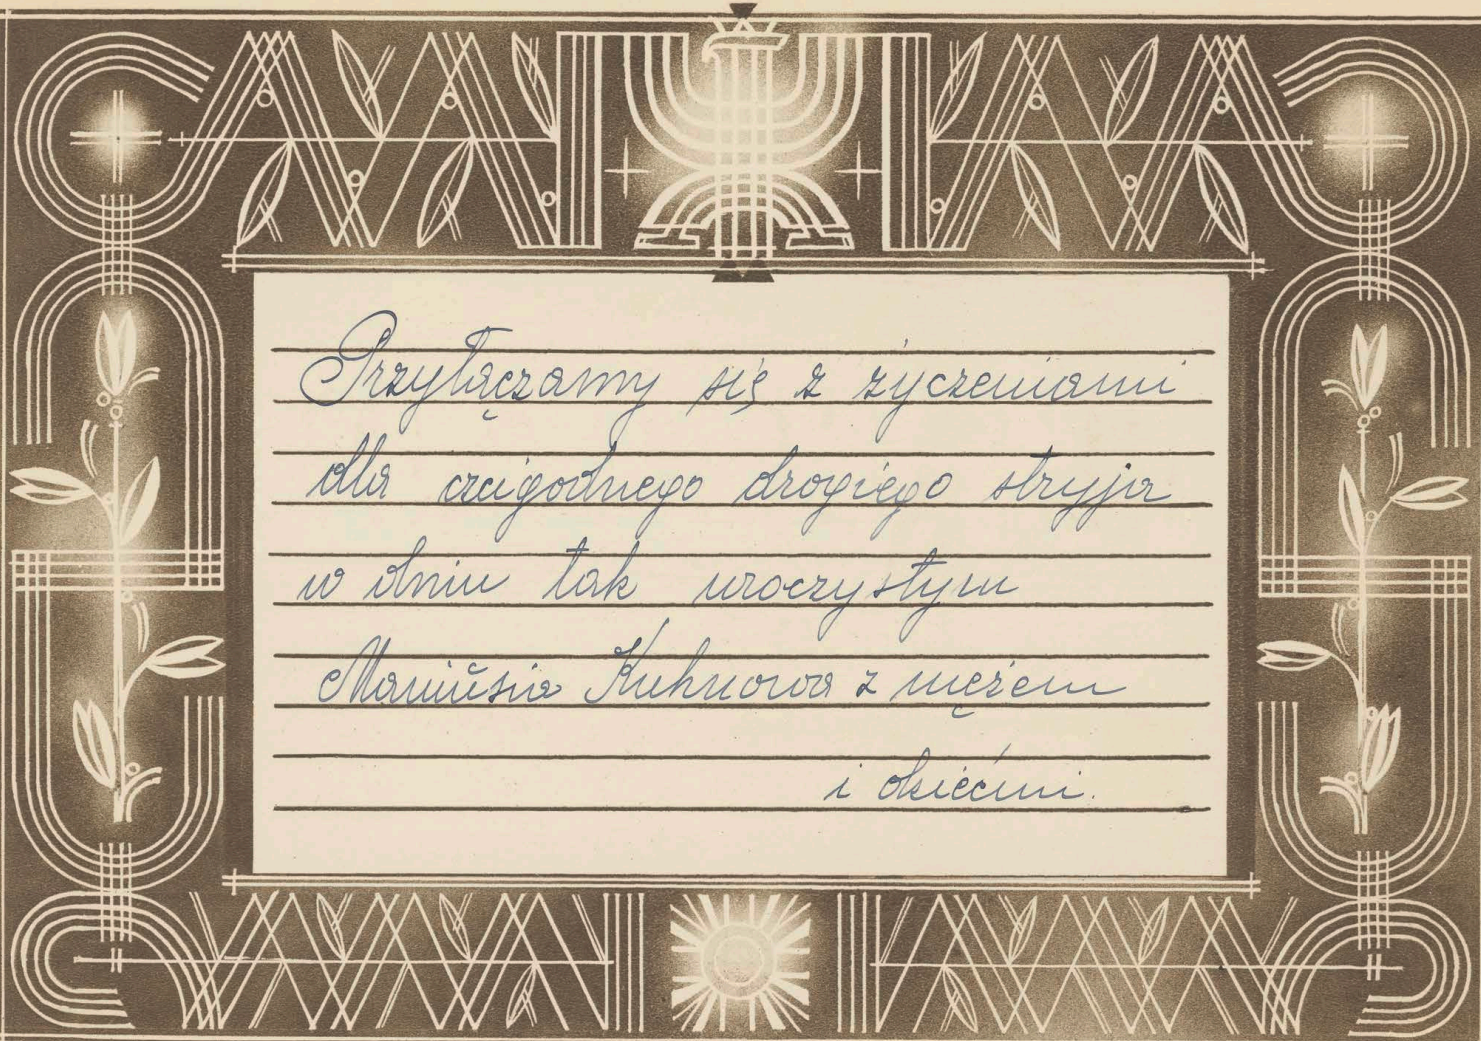 Przyłączamy się z życzeniami
dla czcigodnego drogiego stryja
w dniu tak uroczystym
Maniusia Kuhnowa z mężem
i dziećmi.